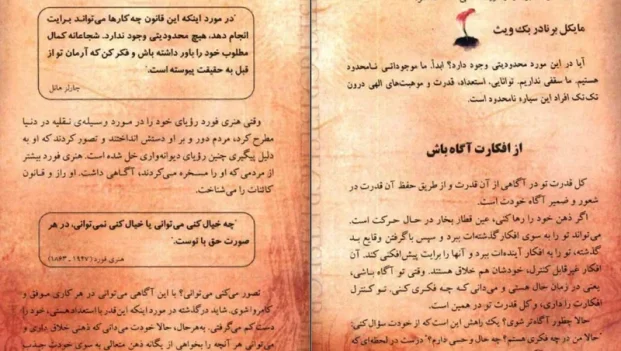 مایکل برنارد بک ویث
آیا در این مورد محدودیتی وجود دارد؟ ابداً. ما موجوداتی نامحدود
هستیم. ما سقفی نداریم. توانایی، استعداد، قدرت و موهبت‌های الهی درون
تک‌تک افراد این سیاره نامحدود است.
از افکارت آگاه باش
کل قدرت تو در آگاهی از آن قدرت و از طریق حفظ آن قدرت در
شعور و ضمیر آگاه خودت است.
اگر ذهن خود را رها کنی، عین قطار بخار در حال حرکت است.
می‌تواند تو را به سوی افکار گذشته‌ات ببرد و سپس با گرفتن وقایع بد
گذشته، تو را به افکار آینده‌ات ببرد و آنها را برایت پیش‌افکنی کند. آن
افکار غیرقابل کنترل، خودشان هم خلاق هستند. وقتی تو آگاه باشی،
یعنی در زمان حال هستی و می‌دانی که چه فکری کنی. تو کنترل
افکارت را داری، و کل قدرت تو در همین است.
حالا چطور آگاه‌تر شوی؟ یک راهش این است که از خودت سؤال کنی:
"حالا من در چه فکری هستم؟ چه حال و حسی دارم؟" درست در لحظه‌ای که
"در مورد اینکه این قانون چه کارها می‌تواند برایت
انجام دهد، هیچ محدودیتی وجود ندارد. شجاعانه کمال
مطلوب خود را باور داشته باش و فکر کن که آرمان تو از
قبل به حقیقت پیوسته است."
چارلز هانل
وقتی هنری فورد رؤیای خود را در مورد وسیله‌ی نقلیه در دنیا
مطرح کرد، مردم دور و بر او دستش انداختند و تصور کردند که او به
دلیل پیگیری چنین رؤیای دیوانه‌واری خل شده است. هنری فورد بیشتر
از مردمی که او را مسخره می‌کردند، آگاهی داشت. او راز و قانون
کائنات را می‌شناخت.
"چه خیال کنی می‌توانی یا خیال کنی نمی‌توانی، در هر
صورت حق با توست."
هنری فورد (۱۹۴۷ ـ ۱۸۶۳)
تصور می‌کنی می‌توانی؟ با این آگاهی می‌توانی در هر کاری موفق و
کامروا شوی. شاید در گذشته در مورد اینکه این قدر با استعداد هستی، خود را
دست کم می‌گرفتی. به‌هرحال، حالا خودت می‌دانی که ذهنی خلاق داری و
می‌توانی هر آنچه را بخواهی از یگانه ذهن متعالی به سوی خودت جذب